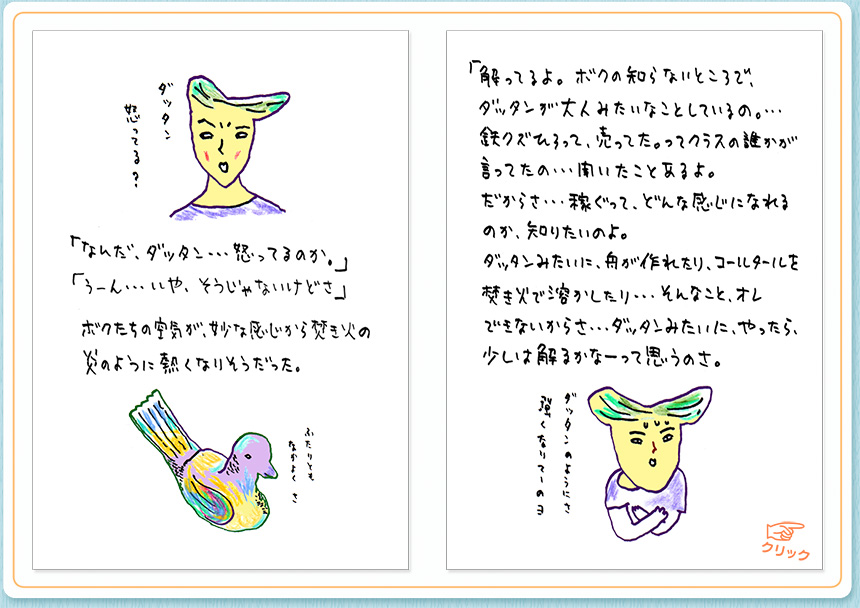 ダッタン
怒ってる?
「なんだ、ダッタン・・・怒ってるのか。」
「うーん・・・いや、そうじゃないけどさ」
ボクたちの空気が、妙な感じから焚き火の
炎のように熱くなりそうだった。
ふたりとも
なかよくさ
「解ってるよ。ボクの知らないところで、
ダッタンが大人みたいなことしているの。・・・
鉄クズひろって、売ってた。ってクラスの誰かが
言ってたの・・・聞いたことあるよ。
だからさ・・・稼ぐって、どんな感じになれる
のか、知りたいのよ。
ダッタンみたいに、舟が作れたり、コールタールを
焚き火で溶かしたり・・・そんなこと、オレ
できないからさ・・・ダッタンみたいに、やったら、
少しは解るかなーって思うのさ。
ダッタンのようにさ
強くなりてーのヨ
クリック